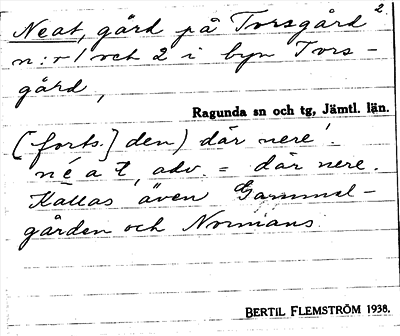 Neat, gård på Torsgård 2
n:r 1 och 2 i byn Tors-
gård,
Ragunda sn och tg, Jämtl. län.
[forts.] den) där nere'.
néat, adv. = där nere.
Kallas även Gammal-
gården och Normans.
BERTIL FLEMSTRÖM 1938.